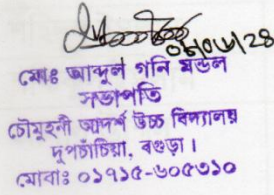 ০৮/০৬/২৪
মোঃ আব্দুল গনি মন্ডল
সভাপতি
চৌমুহনী আদর্শ উচ্চ বিদ্যালয়
দুপচাঁচিয়া, বগুড়া।
মোবাঃ ০১৭১৫-৬০৫৩১০